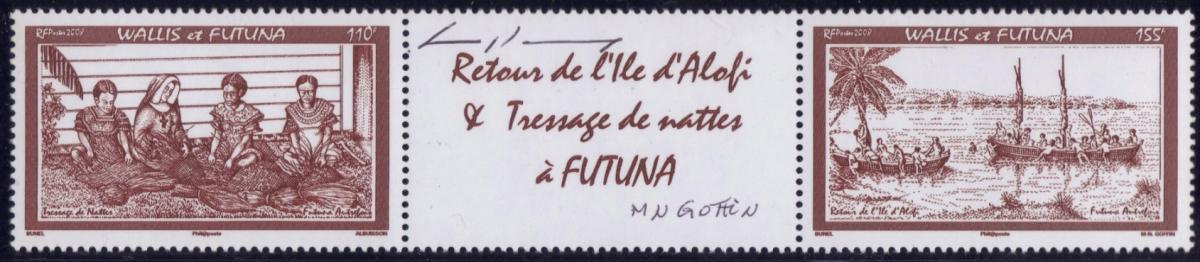 RF Postes 2008 WALLIS et FUTUNA 110F
Tressage de Nattes Futuna Autrefois
BUNEL Phil@poste ALBUISSON
Retour de l'Ile d'Alofi
& Tressage de nattes
à FUTUNA
MN GOFFIN
RF Postes 2008 WALLIS et FUTUNA 155F
Retour de l'Ile d'Alofi Futuna Autrefois
BUNEL Phil@poste M-N. GOFFIN